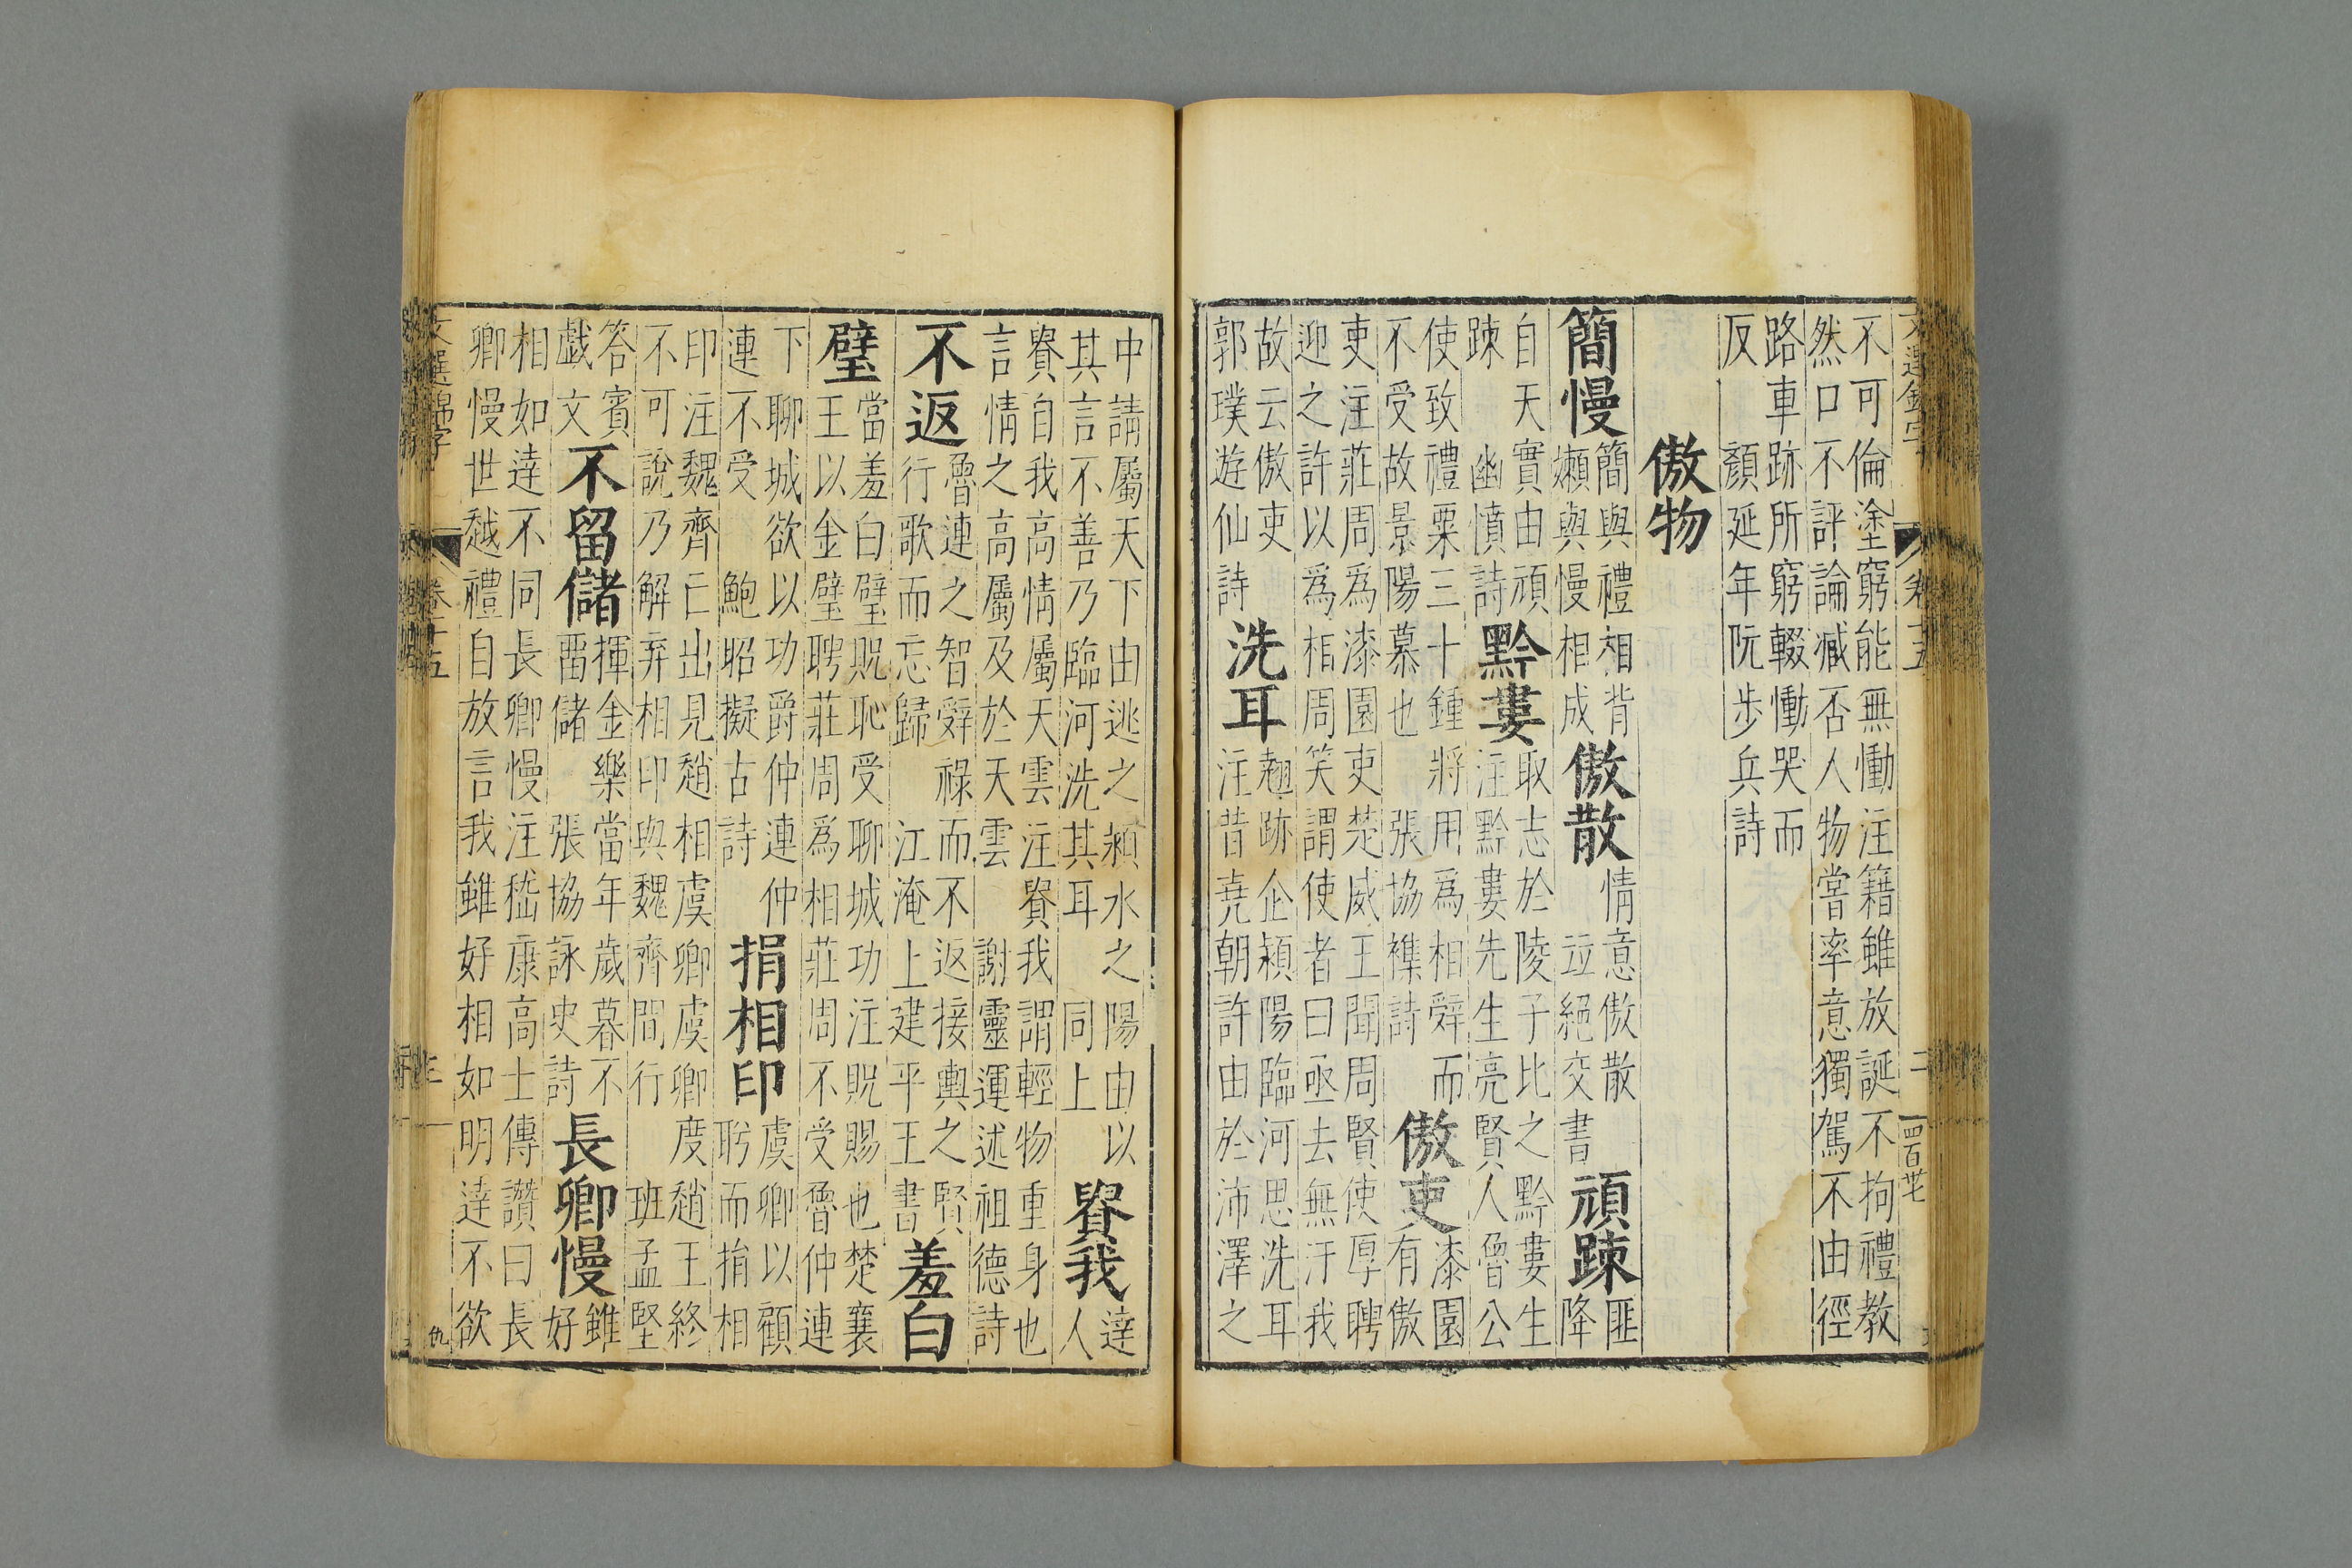 文選錦字 卷十五 二
不可倫塗窮能無慟注籍雖放誕不拘禮教
然口不評論臧否人物嘗率意獨駕不由徑
路車跡所窮輟慟哭而
反 顏延年阮步兵詩
傲物
簡慢
簡與禮相背
嬾與慢相成
傲散
情意傲散
竝絕交書
頑踈
匪
降
自天實由頑
踈 幽憤詩
黔婁
取志於陵子比之黔婁生
注黔婁先生亮賢人魯公
使致禮粟三十鍾將用爲相辤而
不受故景陽慕也 張協襍詩
傲吏
漆園
有傲
吏注莊周爲漆園吏楚威王聞周賢使厚聘
迎之許以爲相周笑謂使者曰亟去無汙我
故云傲吏
郭璞遊仙詩
洗耳
翹跡企潁陽臨河思洗耳
注昔堯朝許由於沛澤之
中請屬天下由逃之潁水之陽由以
其言不善乃臨河洗其耳 同上
貲我
達
人
貲自我高情屬天雲注貲我謂輕物重身也
言情之高屬及於天雲 謝靈運述祖德詩
不返
魯連之智辤祿而不返接輿之賢
行歌而忘歸 江淹上建平王書
羞白
璧
當羞白璧貺恥受聊城功注貺賜也楚襄
王以金璧聘莊周爲相莊周不受魯仲連
下聊城欲以功爵仲連仲
連不受 鮑昭擬古詩
捐相印
虞卿以顧
盻而捐相
印注魏齊亡出見趙相虞卿虞卿度趙王終
不可說乃解弃相印與魏齊間行 班孟堅
答賓
戯文
不留儲
揮金樂當年歲暮不
畱儲 張協詠史詩
長卿慢
雖
好
相如達不同長卿慢注嵇康高士傳讚曰長
卿慢世越禮自放言我雖好相如明達不欲
文選錦字 卷十五 三